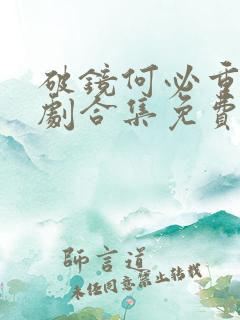 破鏡何必重
劇合集免費
師言道
未任同意禁止转载